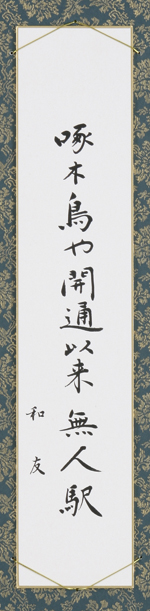 啄木鳥や開通以来無人駅
和友